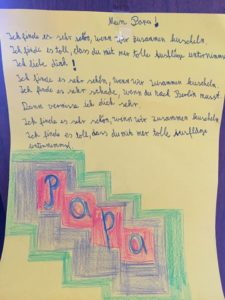 Mein Papa!
Ich finde es sehr schön, wenn wir zusammen kuscheln.
Ich finde es toll, dass du mit mir tolle Ausflüge unternimmst.
Ich liebe dich!
Ich finde es sehr schön, wenn wir zusammen kuscheln.
Ich finde es sehr schade, wenn du nach Berlin musst.
Dann vermisse ich dich sehr.
Ich finde es sehr schön, wenn wir zusammen kuscheln
Ich finde es toll, dass du mit mir tolle Ausflüge
unternimmst
Papa